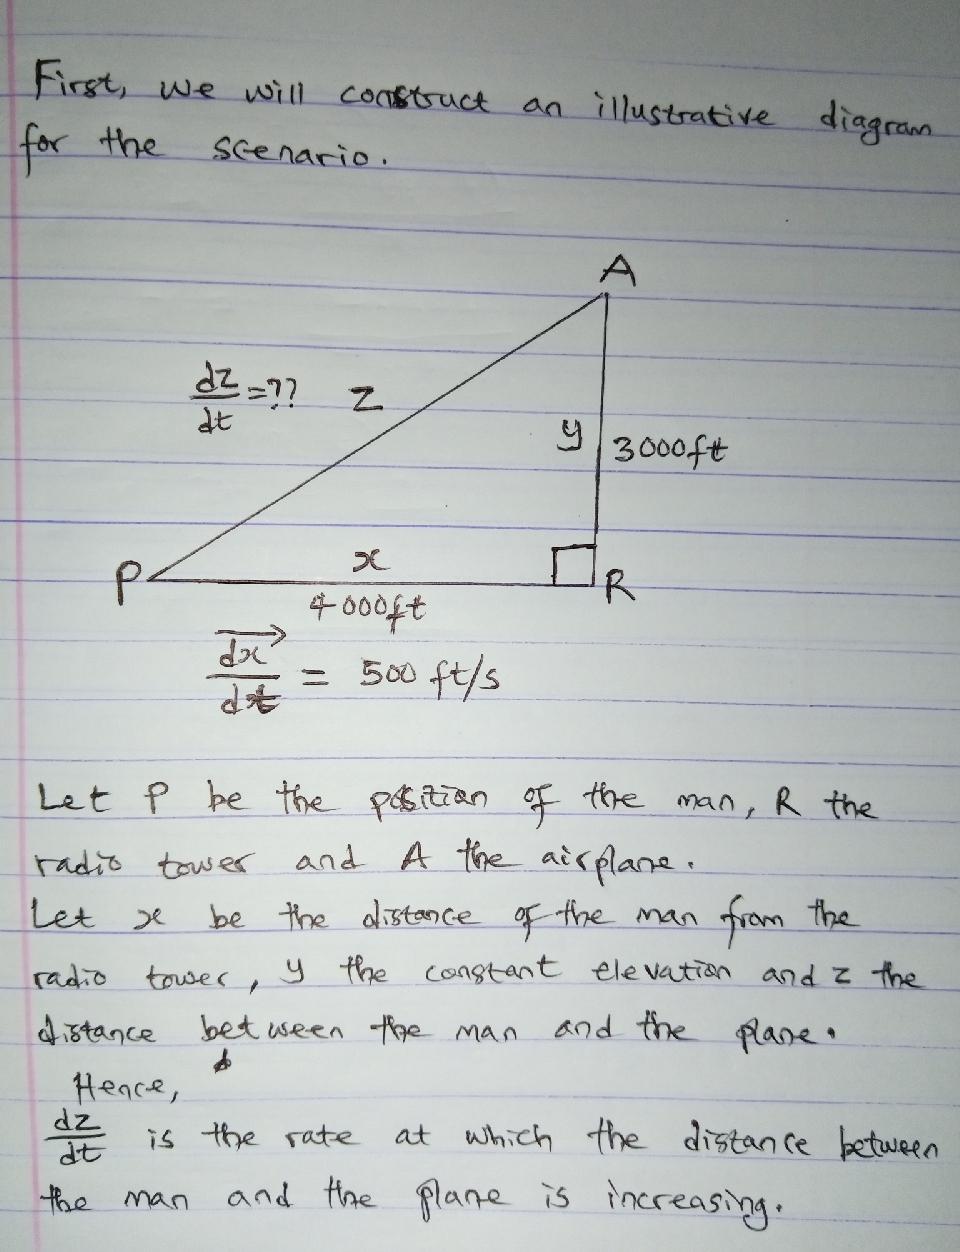 First, we will construct an illustrative diagram
for the scenario.
A
dz/dt =??
z
y
3000ft
P
x
R
4000ft
dx/dt = 500 ft/s
Let P be the position of the man, R the
radio tower and A the airplane.
Let x be the distance of the man from the
radio tower, y the constant elevation and z the
distance between the man and the plane.
Hence,
dz/dt is the rate at which the distance between
the man and the plane is increasing.